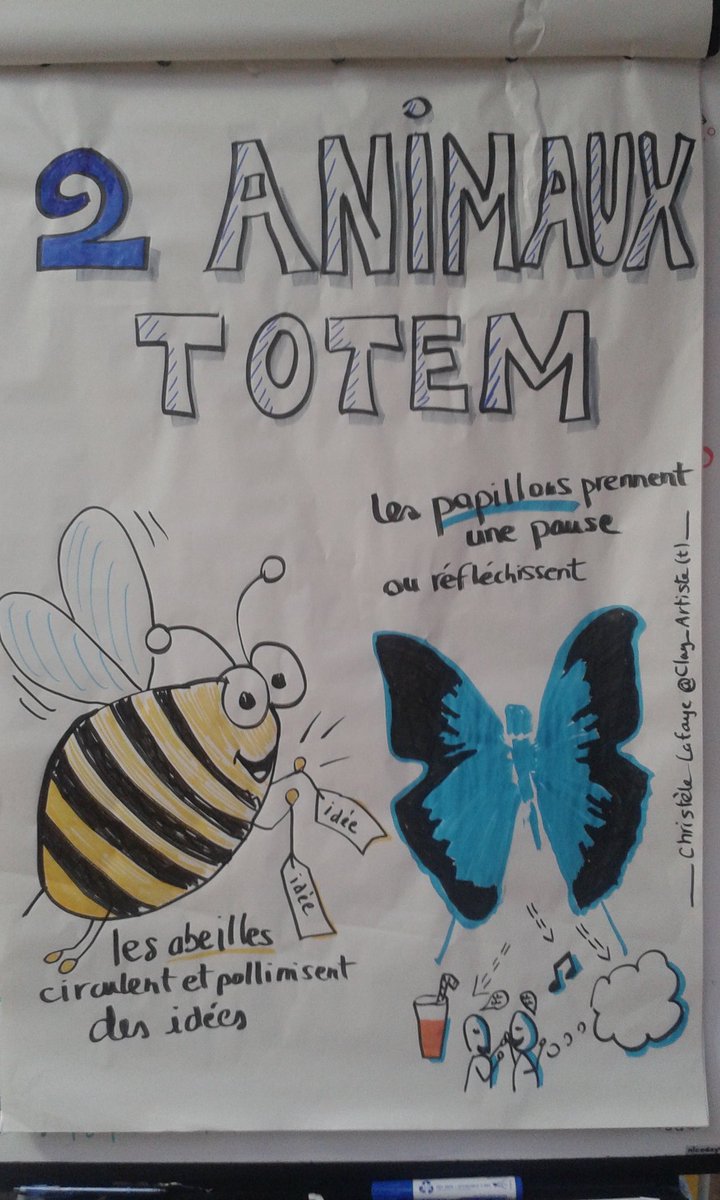 2 ANIMAUX
TOTEM
les papillons prennent
une pause
ou réfléchissent
idée
idée
les abeilles
circulent et pollinisent
des idées
Christèle Lafaye @Clay_Artiste(t)